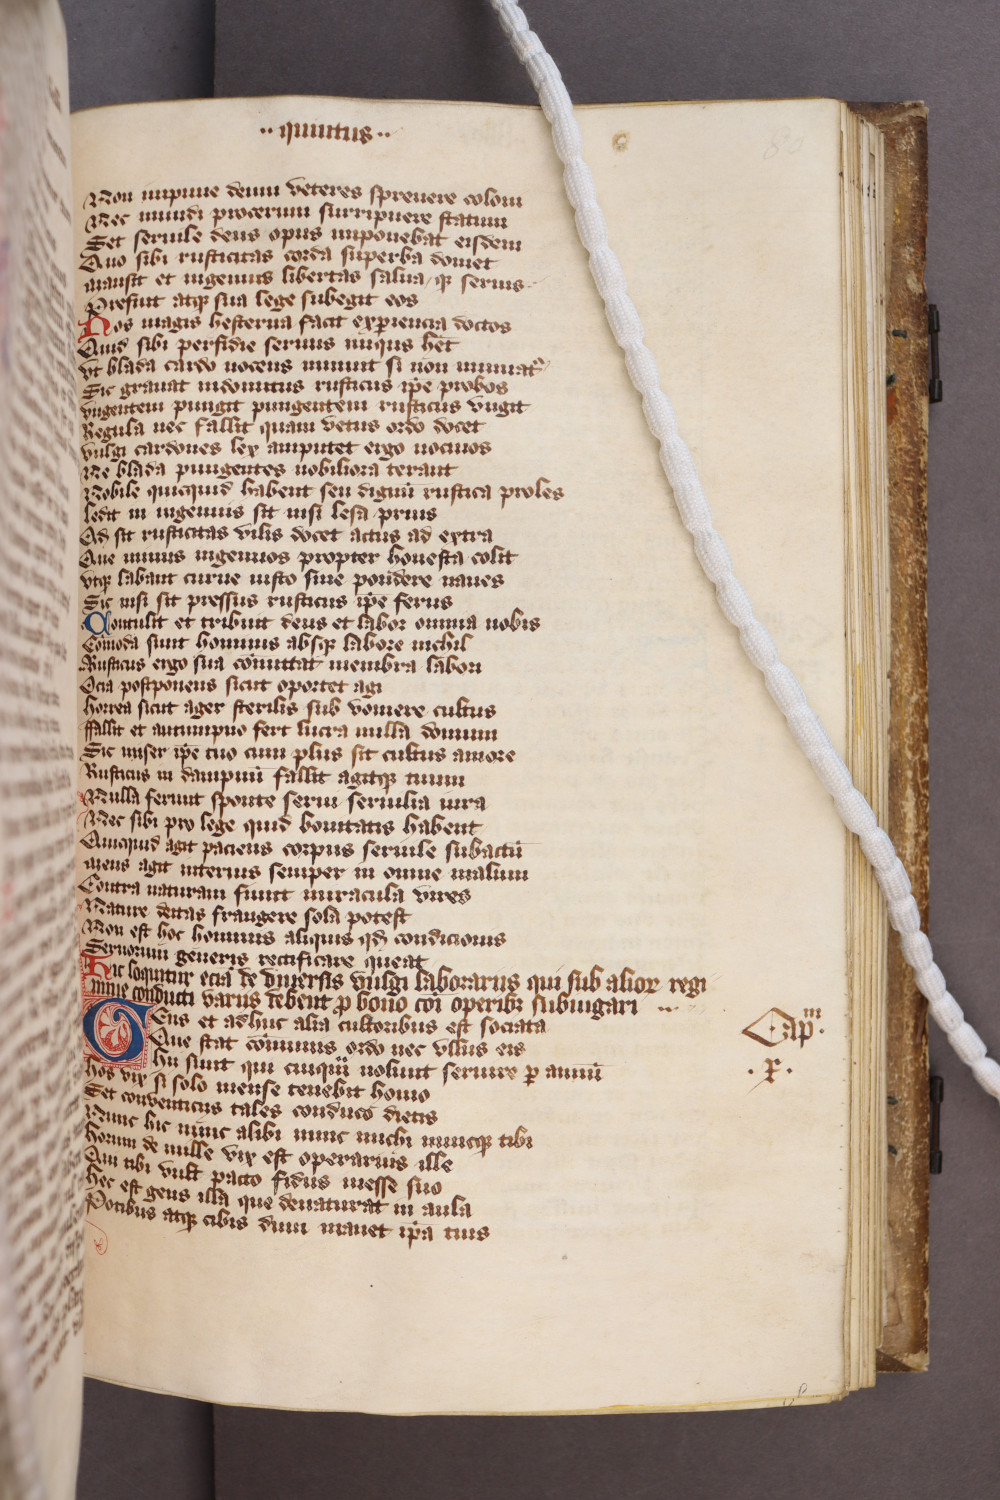 ·· quintus ··
Non inpune deum veteres spreuere coloni
Nec mundi procerum surripuere statum
Set seruile deus opus inponebat eisdem
Quo sibi rusticitas corda superba domet
mansit et ingenuis libertas salua, qͥ seruis
Prefuit atqꝫ sua lege subegit eos
Nos magis hesterna facit exꝑiencia doctos
Quid sibi perfidie seruus iniqus het̄
vt blada cardo nocens minuit si non minuatͬ
Sic grauat indomitus rusticus ip̄e probos
vngentem pungit pungentem rusticus vngit
Regula nec fallit quam vetus ordo docet
vulgi cardones lex amputet ergo nociuos
Ne blada pungentes nobiliora terant
Nobile quicquid habent seu dignū rustica proles
ledit in ingenuis sit nisi lesa prius
Ad sit rusticitas vilis docet actus ad extra
Que minus ingenuos propter honesta colit
vtqꝫ labant curue iusto sine pondere naues
Sic nisi sit pressus rusticus ip̄e ferus
Contulit et tribuit deus et labor omnia nobis
Com̄oda sunt hominis absqꝫ labore nichil
Rusticus ergo sua com̄ittat membra labori
Ocia postponens sicut oportet agi
horrea sicut ager sterilis sub vomere cultus
ffallit et autumpno fert lucra nulla domum
Sic miser ip̄e tuo cum plus sit cultus amore
Rusticus in dampnū fallit agitqꝫ tuum
Nulla ferunt sponte serui seruilia iura
Nec sibi pro lege quid bonitatis habent
Quicquid agit paciens corpus seruile subactū
mens agit interius semper in omne malum
Contra naturam fiunt miracula vires
Nature deitas frangere sola potest
Non est hoc hominis aliquis qd̄ condicionis
Seruorum generis rectificare queat
Hic loquitur eciā de diuersis vulgi laborariis qui sub alioꝝ regi
mine conducti variis debent ꝓ bono coī operibꝫ subiugari ···
Cap̄ᵐ
·x·
Eus et adhuc alia cultoribus est sociata
Que stat com̄unis ordo nec vllus eis
hii sunt qui cuiquā nolunt seruire ꝑ annū
hos vix si solo mense tenebit homo
Set conuenticiis tales conduco dietis
Nunc hic nunc alibi nunc michi nuncqꝫ tibi
horum de mille vix est operarius ille
Qui tibi vult pacto fidus inesse suo
hec est gens illa que denaturat in aula
Potibus atqꝫ cibis dum manet ip̄a tuis